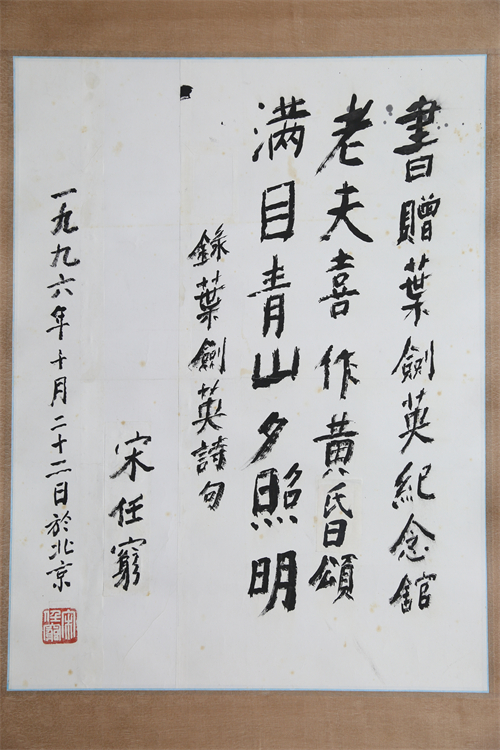 書贈葉劍英紀念舘
老夫喜作黄昏頌
满目青山夕照明
錄葉劍英詩句
宋任窮
一九九六年十月二十二日於北京
宋任窮